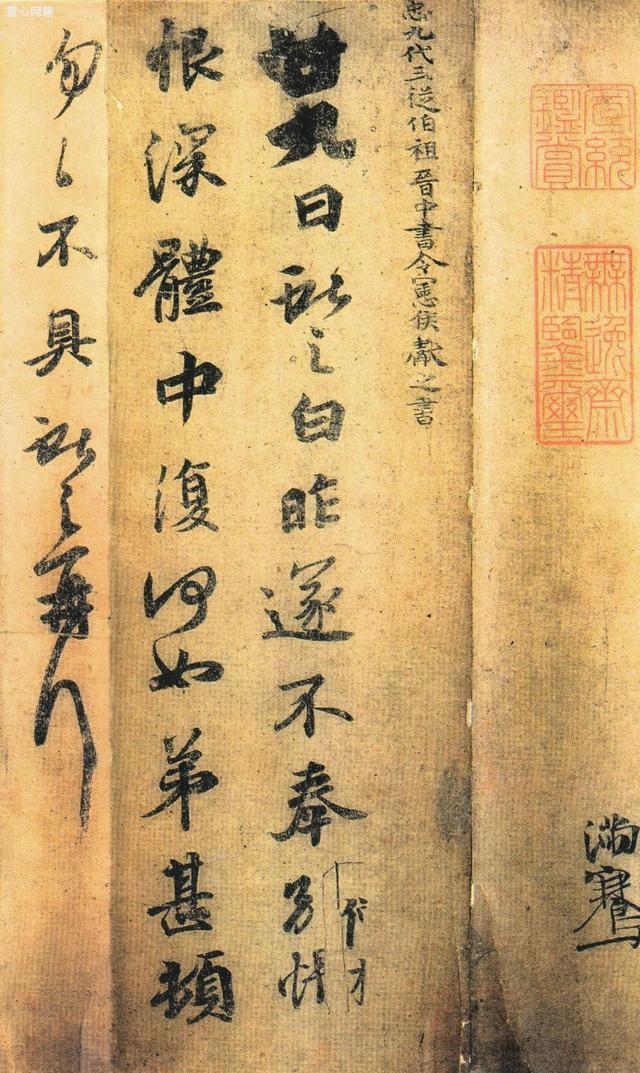 童心网趣
宣統
鑑賞
無逸齋
精鑒璽
滿騫
九代三從伯祖晉中書令憲侯獻之書
廿九日獻之白昨遂不奉別悵
恨深體中復何如弟甚頓
匆匆不具獻之再拜